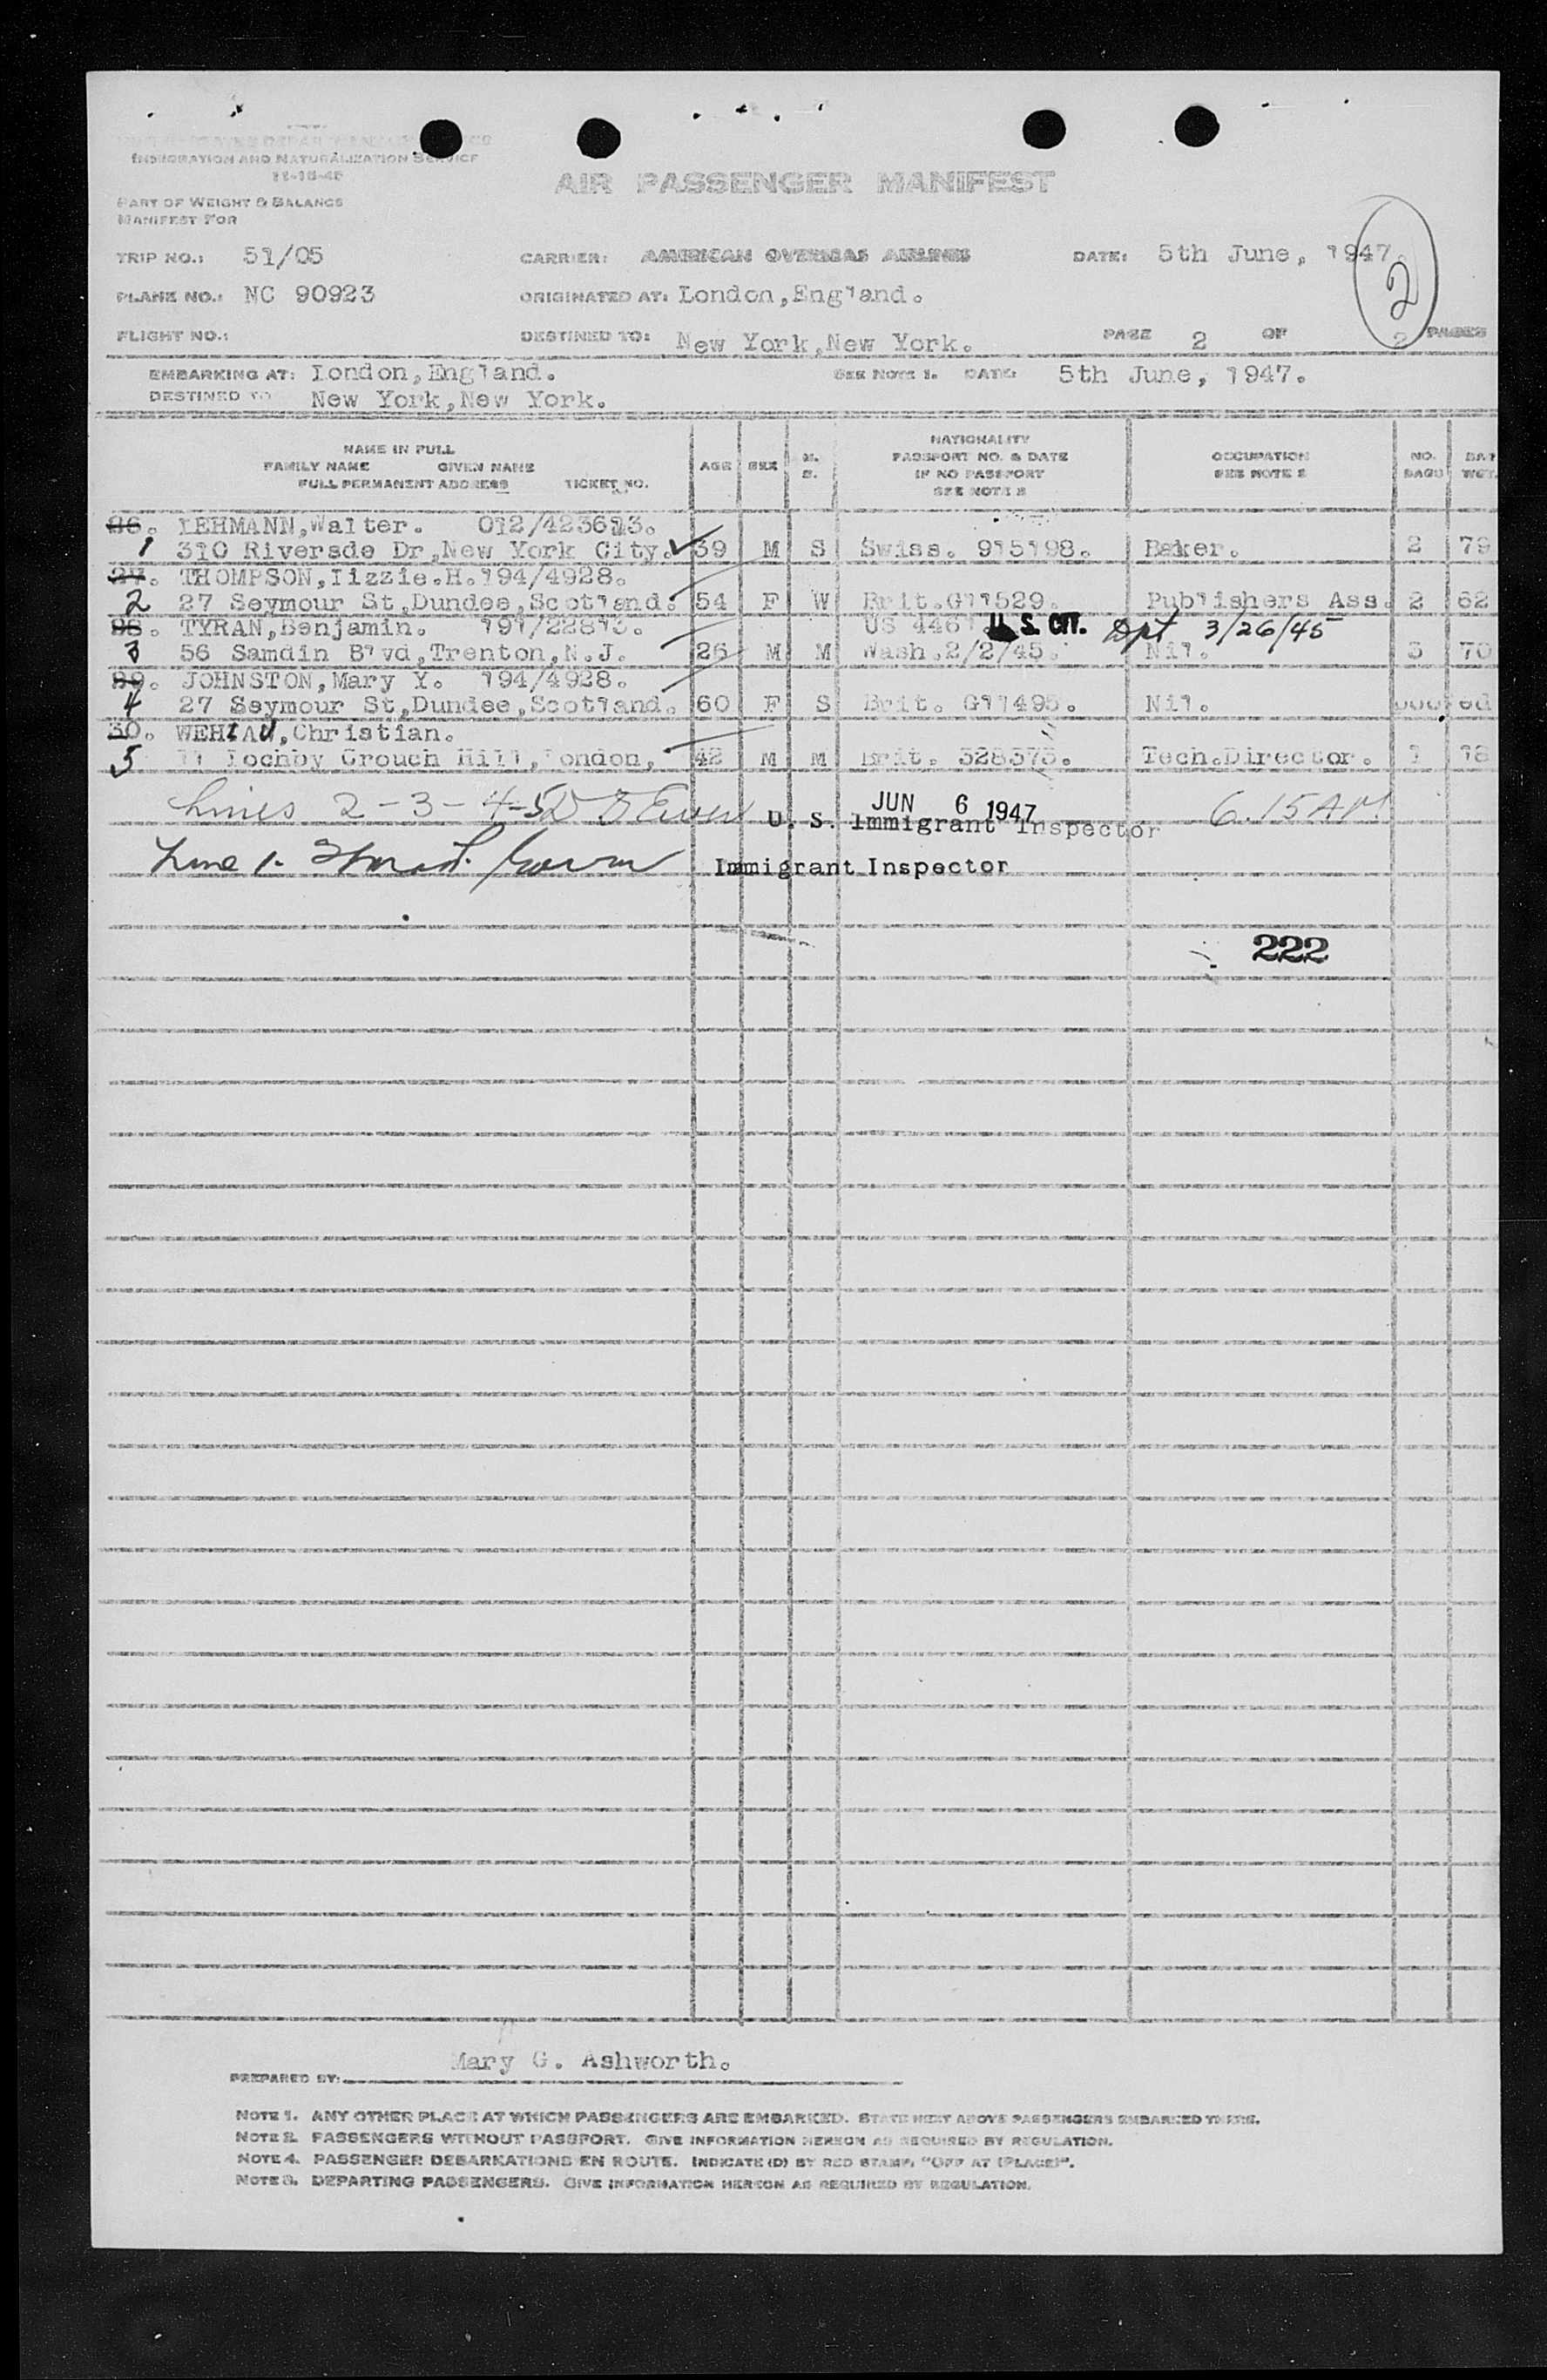 IMMIGRATION AND NATURALIZATION SERVICE
11-15-45
AIR PASSENGER MANIFEST
PART OF WEIGHT & BALANCE
MANIFEST FOR
TRIP NO.: 51/05 CARRIER: AMERICAN OVERSEAS AIRLINES DATE: 5th June, 1947.
2
PLANE NO.: NC 90923 ORIGINATED AT: London,England.
FLIGHT NO.: DESTINED TO: New York,New York. PAGE 2 OF 2 PAGES
EMBARKING AT: London,England. SEE NOTE 1. DATE: 5th June, 1947.
DESTINED TO New York,New York.
NAME IN FULL
FAMILY NAME GIVEN NAME
FULL PERMANENT ADDRESS TICKET NO.
AGE SEX M. S.
NATIONALITY
PASSPORT NO. & DATE
IF NO PASSPORT
SEE NOTE 2
OCCUPATION
SEE NOTE 2
NO. BAGS
WGT.
26. LEHMANN,Walter. 012/423613.
1 310 Riversde Dr,New York City. 39 M S Swiss. 915198. Baker. 2 79
27. THOMPSON,Lizzie.H.194/4928.
2 27 Seymour St,Dundee,Scotland. 54 F W Brit.G11529. Publishers Ass. 2 62
28. TYRAN,Benjamin. 191/22813. US U.S. CIT. Dpt 3/26/45
3 56 Samdin Blvd,Trenton,N.J. 26 M M Wash.2/2/45. Nil. 3 70
29. JOHNSTON,Mary Y. 194/4928.
4 27 Seymour St,Dundee,Scotland. 60 F S Brit. G11495. Nil.
30. WEHLAU,Christian.
5 11 Lochby Crouch Hill,London, 42 M M Brit. 328373. Tech.Director. 1 18
Lines 2-3-4-5 U. S. Immigrant Inspector JUN 6 1947 6.15AM
Line 1. Immigrant Inspector
222
Mary G. Ashworth.
PREPARED BY:
NOTE 1. ANY OTHER PLACE AT WHICH PASSENGERS ARE EMBARKED. STATE NEXT ABOVE PASSENGERS EMBARKED THERE.
NOTE 2. PASSENGERS WITHOUT PASSPORT. GIVE INFORMATION HEREON AS REQUIRED BY REGULATION.
NOTE 4. PASSENGER DEBARKATIONS EN ROUTE. INDICATE (D) BY RED STAMP, "OFF AT (PLACE)".
NOTE 3. DEPARTING PASSENGERS. GIVE INFORMATION HEREON AS REQUIRED BY REGULATION.